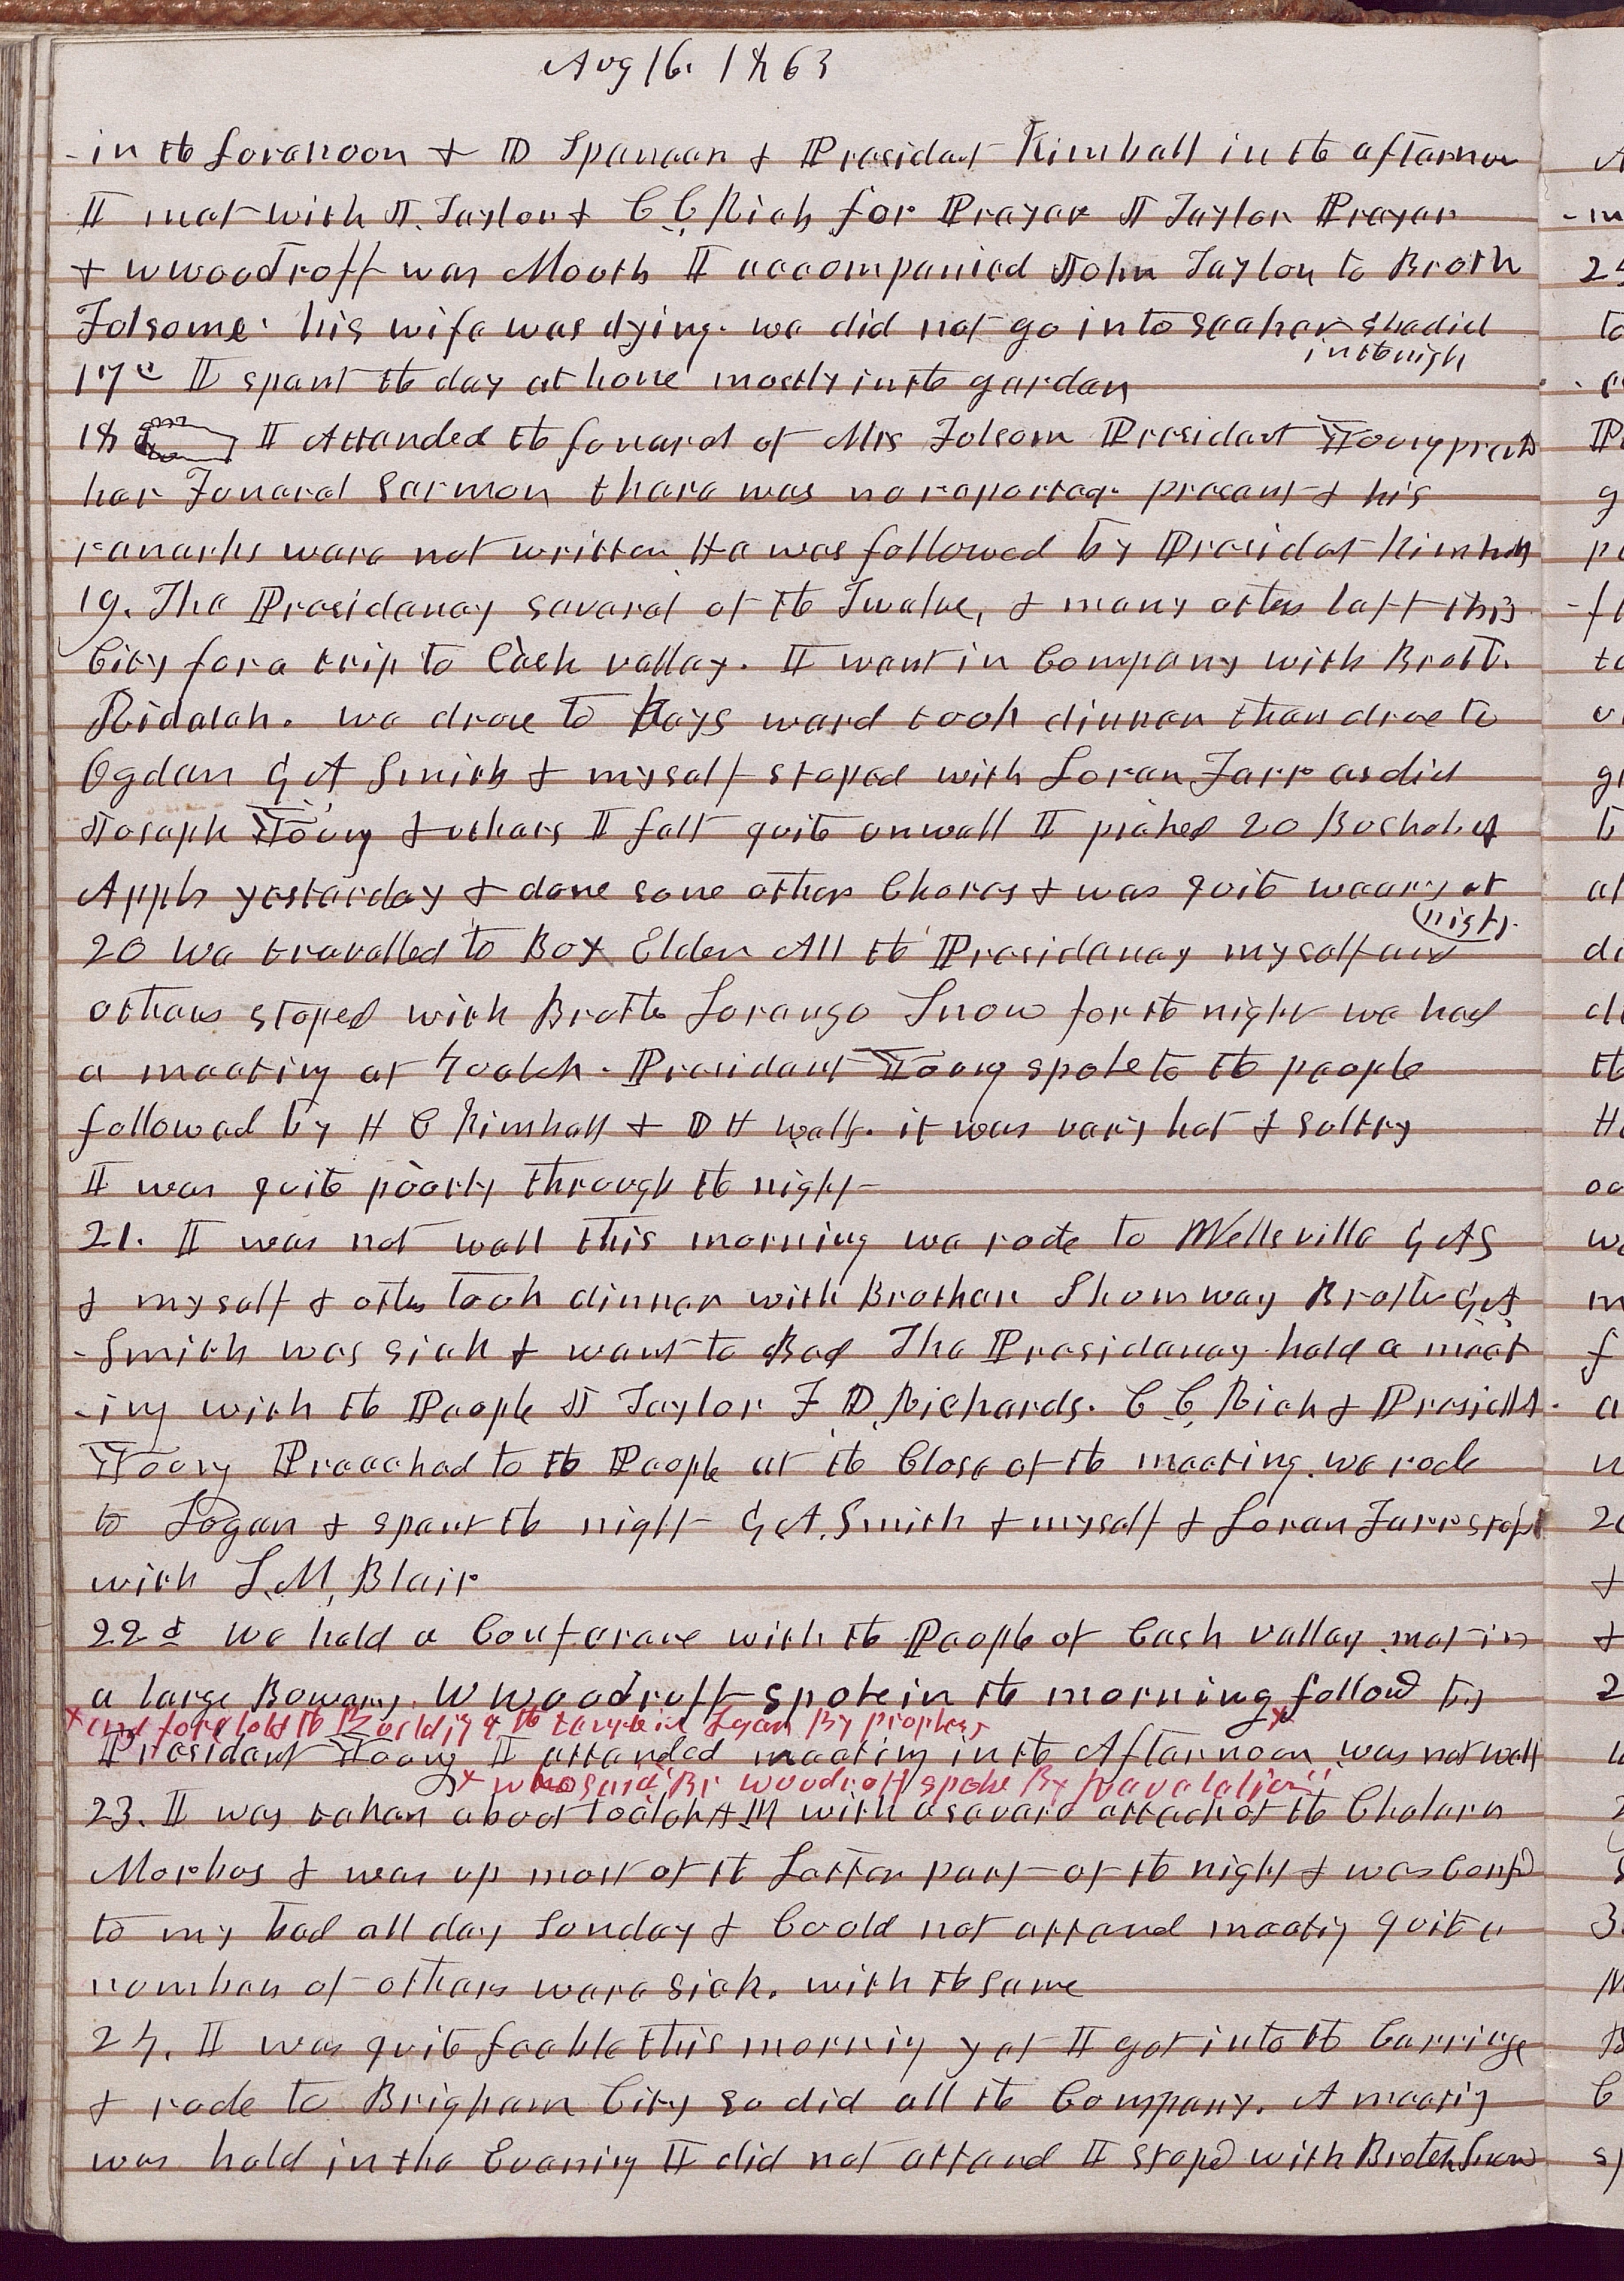 Aug 16. 1863
in the forenoon & D Spencer & President Kimball in the afternoon
I met with J. Taylor & C. C. Rich for Prayer J Taylor Prayer
& W Woodruff was Mouth I accompanied John Taylor to Broth
Folsome. his wife was dying. we did not go in to see her she died
in the nigh
17th I spent the day at home mostly in the garden
18 I Attended the funeral of Mrs Folsom President Young preachd
her Funeral Sermon there was no reporter present & his
remarks were not written He was followed by President Kimball
19. The Presidency several of the Twelve, & many others left this
City for a trip to Cash valley. I went in Company with Broth.
Rideleh. we drove to Kays ward took dinner then drove to
Ogden G A Smith & myself stoped with Loran Farr as did
Joseph Young & others I felt quite unwell I picked 20 Bushels of
Apples yesterday & done some other Chores & was quite weary at
night.
20 We travelled to Box Elder All the Presidency myself and
others stoped with Brother Lorenzo Snow for the night we had
a meeting at 4 oclok. President Young spoke to the people
followed by H C Kimball & D H Wells. it was very hot & sultry
I was quite poorly through the night
21. I was not well this morning we rode to Wellsville G A S
& myself & others took dinner with Brother Shumway Brother G A
Smith was sick & went to Bed The Presidency held a meet
-ing with the People J Taylor F D Richards. C C Rich & Presidet.
Young Preached to the People at the Close of the meeting. we rode
to Logan & spent the night G A. Smith & myself & Loran Farr stopd
with S. M. Blair
22d We held a Conferance with the People of Cash valley met in
a large Bowery. W Woodruff spoke in the morning followd by
x and foretold the Building of the temple in Logan By prophesy x
President Young I attended meeting in the Afternoon was not well
x who said Br Woodruff spoke By Revelation"
23. I was taken about 1 oclok A M with a severe attack of the Cholera
Morbus & was up most of the Latter part of the night & was Confd
to my bed all day Sunday & Could not attend meeting quite a
number of others were sick. with the same
24. I was quite feeble this morning yet I got into the Carriage
& rode to Brigham City so did all the Company. A meeting
was held in the Evening I did not attend I stoped with Brother Snow